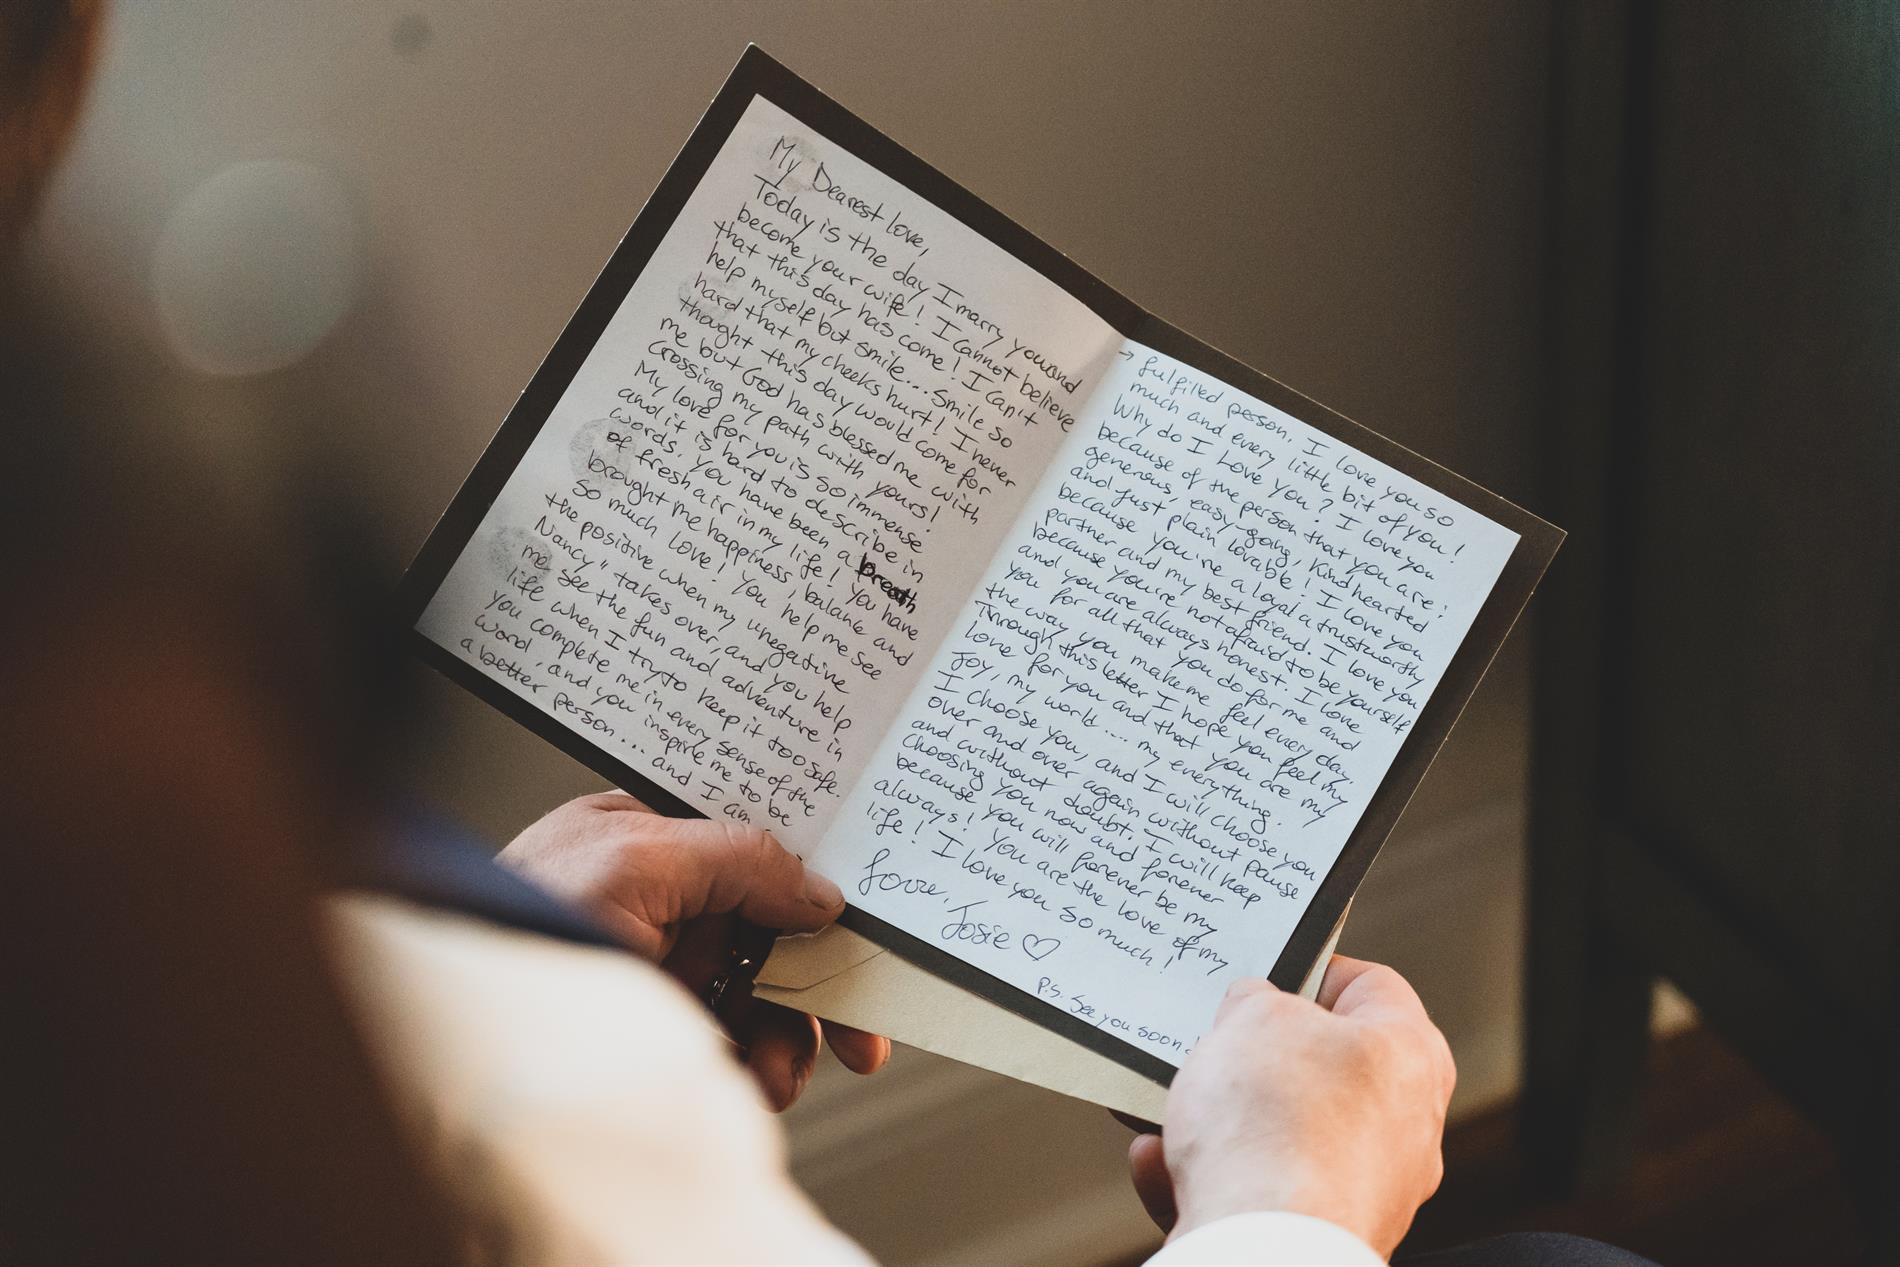 My Dearest love,
Today is the day I marry you and
become your wife! I cannot believe
that this day has come! I can't
help myself but smile... smile so
hard that my cheeks hurt! I never
thought this day would come for
me but God has blessed me with
crossing my path with yours!
My love for you is so immense
and it is hard to describe in
words. You have been a breath
of fresh air in my life! You have
brought me happiness, balance and
so much love! You help me see
the positive when my "negative
Nancy" takes over, and you help
me see the fun and adventure in
life when I try to keep it too safe.
You complete me in every sense of the
word, and you inspire me to be
a better person... and I am
→ fulfilled person. I love you so
much and every little bit of you!
Why do I Love you? I love you
because of the person that you are:
generous, easy-going, kind hearted
and just plain lovable! I love you
because you're a loyal a trustworthy
partner and my best friend. I love you
because you're not afraid to be yourself
and you are always honest. I love
you for all that you do for me and
the way you make me feel every day.
Through this letter I hope you feel my
love for you and that you are my
Joy, my world.... my everything.
I choose you, and I will choose you
over and over again without pause
and without doubt. I will keep
choosing you now and forever
because you will forever be my
always! You are the love of my
life! I love you so much!
Love,
Josie ♡
P.S. See you soon!